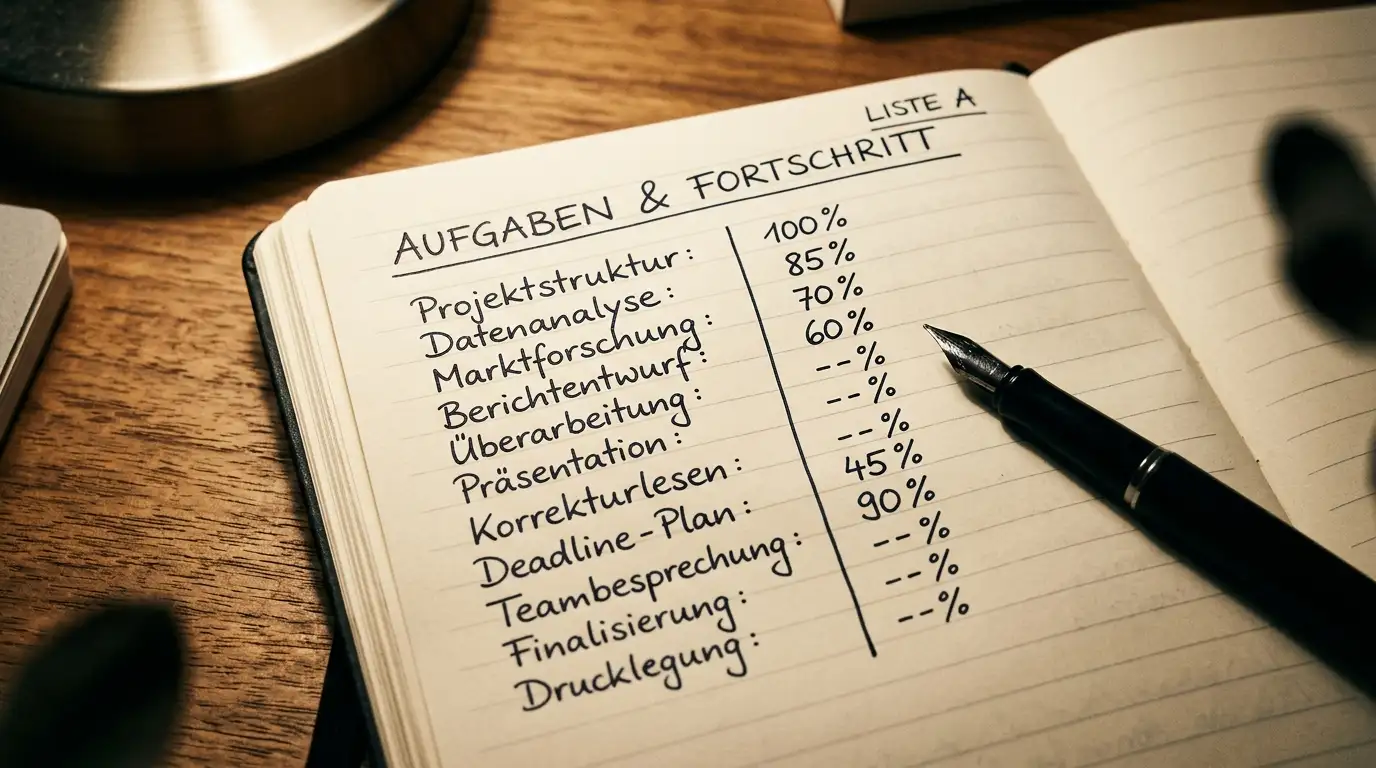 LISTE A
AUFGABEN & FORTSCHRITT
Projektstruktur: 100%
Datenanalyse: 85%
Marktforschung: 70%
Berichtentwurf: 60%
Überarbeitung: --%
Präsentation: --%
Korrekturlesen: --%
Deadline-Plan: 45%
Teambesprechung: 90%
Finalisierung: --%
Drucklegung: --%
--%